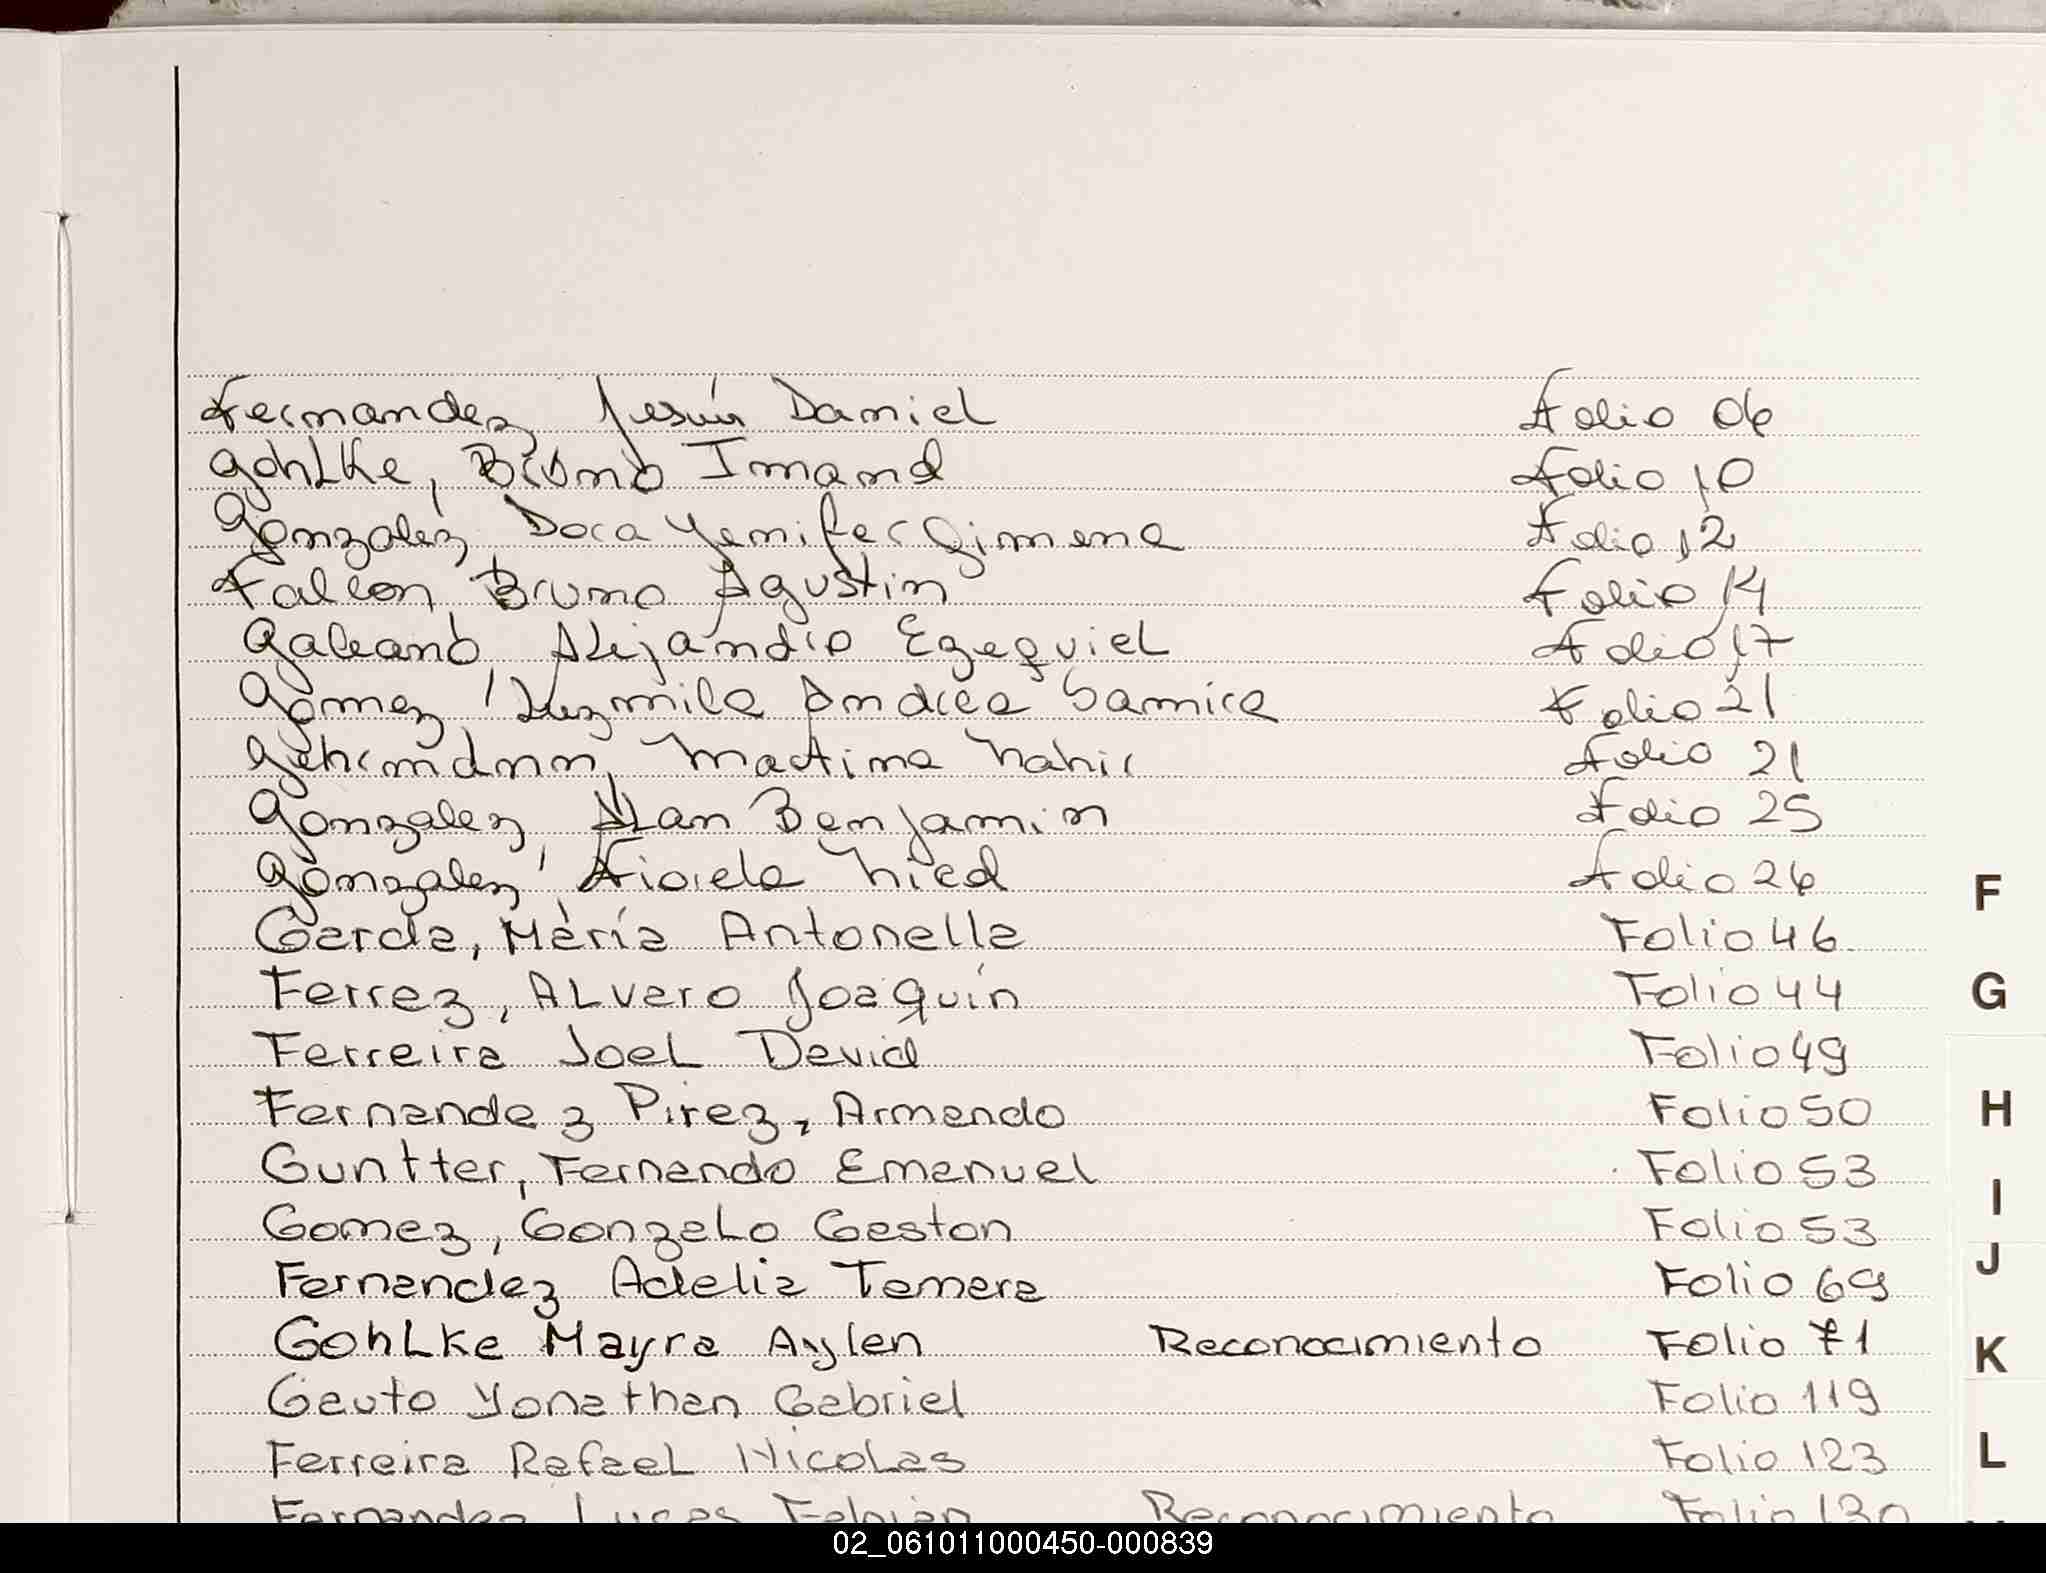 Fernandez Jesús Daniel Folio 06
Gohlke, Bruno Imanol Folio 10
Gonzalez, Dora Yenifer Gimena Folio 12
Falcon, Bruno Agustin Folio 14
Galeano, Alejandro Ezequiel Folio 17
Gomez, Luzmila Andrea Samira Folio 21
Gehrmann, Martina Nahir Folio 21
Gonzalez, Alan Benjamin Folio 25
Gonzalez, Fiorela Folio 26
Garcia, María Antonella Folio 46
F
Ferrez, Alvaro Joaquín Folio 44
G
Ferreira Joel David Folio 49
Fernandez Pirez, Armando Folio 50
H
Guntter, Fernando Emanuel Folio 53
I
Gomez, Gonzalo Gaston Folio 53
J
Fernandez Adelia Tamara Folio 69
Gohlke Mayra Aylen Reconocimiento Folio 71
K
Gauto Yonathan Gabriel Folio 119
Ferreira Rafael Nicolas Folio 123
L
Fernandez Lucas Fabian Reconocimiento Folio 130
02_061011000450-000839